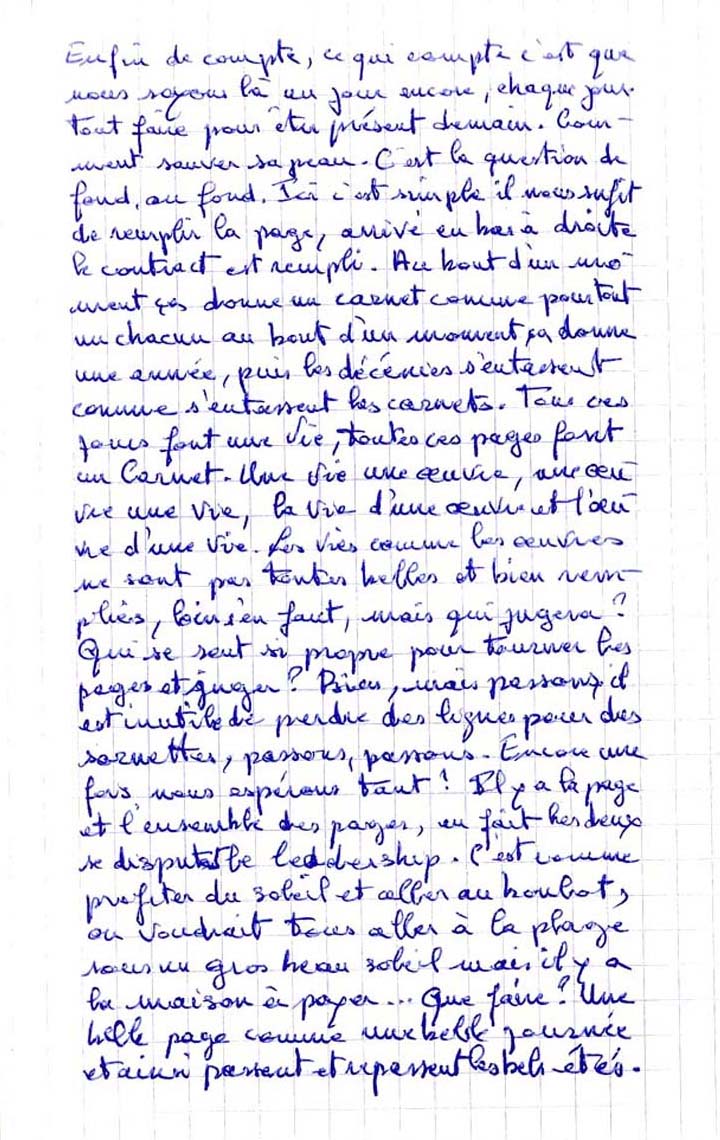 Enfin de compte, ce qui compte c'est que
nous soyons là un jour encore, chaque jour.
Tout faire pour être présent demain. Com-
ment sauver sa peau. C'est la question de
fond, au fond. Ici c'est simple il nous sufit
de remplir la page, arrivé en bas à droite
le contract est rempli. Au bout d'un mo-
ment ça donne un carnet comme pour tout
un chacun au bout d'un moment ça donne
une année, puis les décénies s'entassent
comme s'entassent les carnets. Tous ces
jours font une vie, toutes ces pages font
un Carnet. Une vie une œuvre, une œu
vre une vie, la vie d'une œuvre et l'œu
vre d'une vie. Les vies comme les œuvres
ne sont pas toutes belles et bien rem-
plies, loin s'en faut, mais qui jugera ?
Qui se sent si propre pour tourner les
pages et juger ? Bien, mais passons, il
est inutile de perdre des lignes pour des
sornettes, passons, passons. Encore une
fois nous espérons tant ! Il y a la page
et l'ensemble des pages, en fait les deux
se disputent le leaddership. C'est comme
profiter du soleil et aller au boulot,
on voudrait tous aller à la plage
sous un gros beau soleil mais il y a
la maison à payer... Que faire ? Une
belle page comme une belle journée
et ainsi passent et repassent les bels étés.